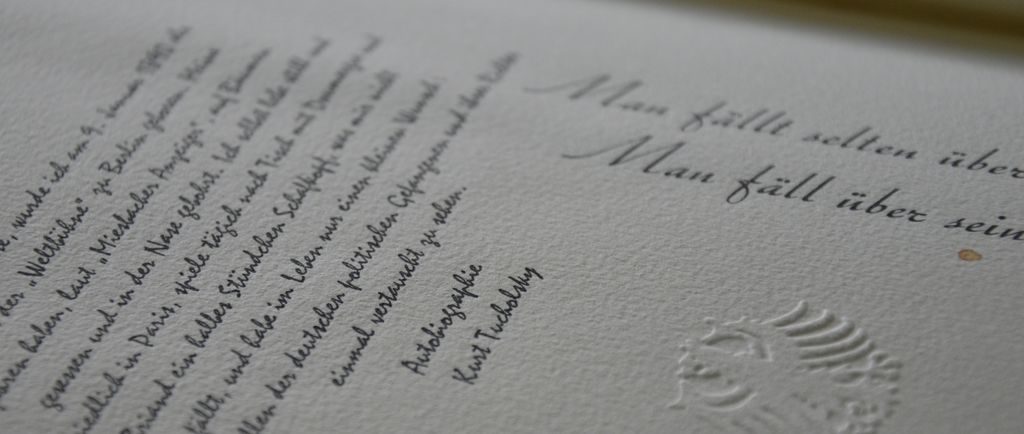 wurde ich am 9. Januar 1890 als
der „Weltbühne" zu Berlin
haben, laut „Miesbacher Anzeiger", auf Bäumen
gesessen und in der Nase gebohrt. Ich selbst lebe still und
friedlich in Paris, spiele täglich nach Tisch mit Doumergue und
Briand ein halbes Stündchen Schafkopf, was mir nicht
fällt, und habe im Leben nur einen kleinen Wunsch:
der deutschen politischen Gefangenen und ihre Richter
einmal vertauscht zu sehen.
Autobiographie
Kurt Tucholsky
Man fällt selten über
Man fäll über sein